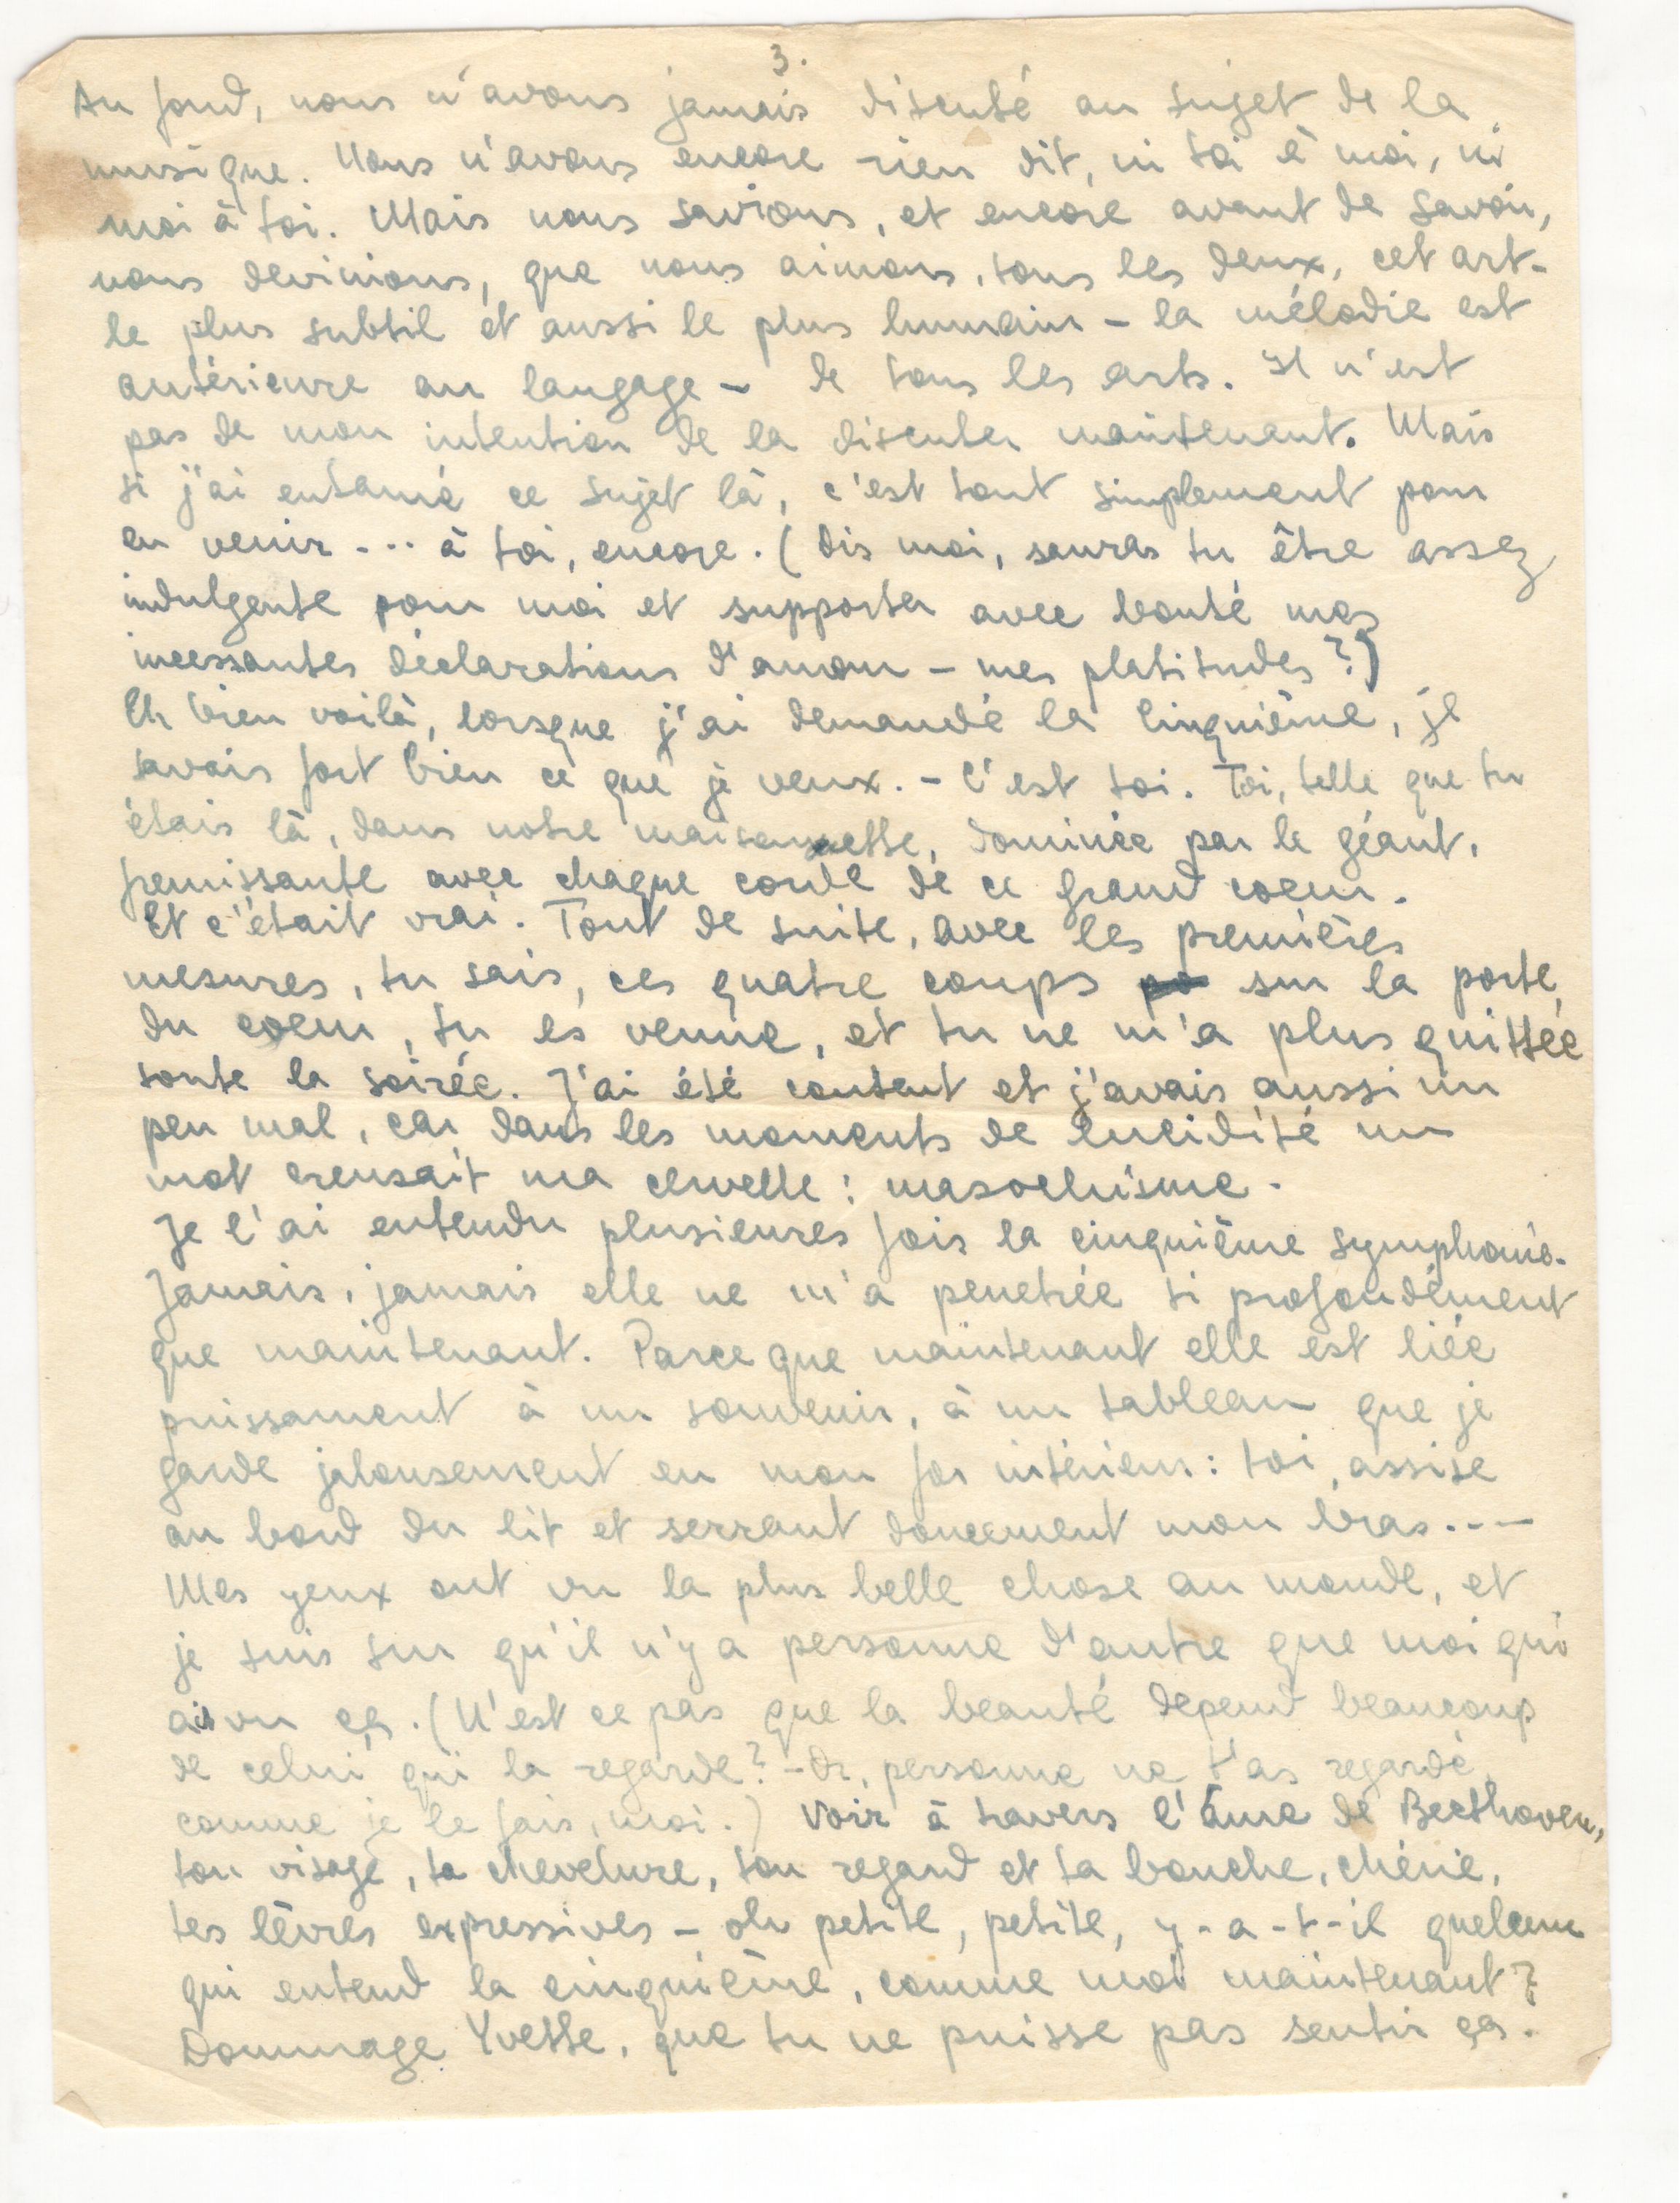 3.
Au fond, nous n'avons jamais discuté au sujet de la
musique. Nous n'avons encore rien dit, ni toi à moi, ni
moi à toi. Mais nous savions, et encore avant de savoir,
nous devinions, que nous aimons, tous les deux, cet art -
le plus subtil et aussi le plus humain - la mélodie est
antérieure au langage - de tous les arts. Il n'est
pas de mon intention de la discuter maintenant. Mais
si j'ai entamé ce sujet là, c'est tout simplement pour
en venir ... à toi, encore. (Dis moi, sauras tu être assez
indulgente pour moi et supporter avec bonté mes
incessantes déclarations d'amour - mes platitudes?)
Eh bien voilà, lorsque j'ai demandé la Cinquième, je
savais fort bien ce que je veux. - C'est toi. Toi, telle que tu
étais là, dans notre maisonnette, dominée par le géant,
fremissante avec chaque corde de ce grand coeur.
Et c'était vrai. Tout de suite, avec les premières
mesures, tu sais, ces quatre coups sur la porte
du coeur, tu es venue, et tu ne m'a plus quittée
toute la soirée. J'ai été content et j'avais aussi un
peu mal, car dans les moments de lucidité un
mot creusait ma cervelle: masochisme.
Je l'ai entendu plusieures fois la cinquième symphonie.
Jamais, jamais elle ne m'a penetrée si profondément
que maintenant. Parce que maintenant elle est liée
puissament à un souvenir, à un tableau que je
garde jalousement en mon for intérieur: toi, assise
au bord du lit et serrant doucement mon bras....
Mes yeux ont vu la plus belle chose au monde, et
je suis sur qu'il n'y a personne d'autre que moi qui
ait vu ça. (N'est ce pas que la beauté depend beaucoup
de celui qui la regarde? - Or, personne ne t'as regardé
comme je le fais, moi.) Voir à travers l'âme de Beethoven,
ton visage, ta chevelure, ton regard et ta bouche, chérie,
tes lèvres expressives - oh petite, petite, y-a-t-il quelcun
qui entend la cinquième, comme moi maintenant?
Dommage Yvette, que tu ne puisse pas sentir ça.